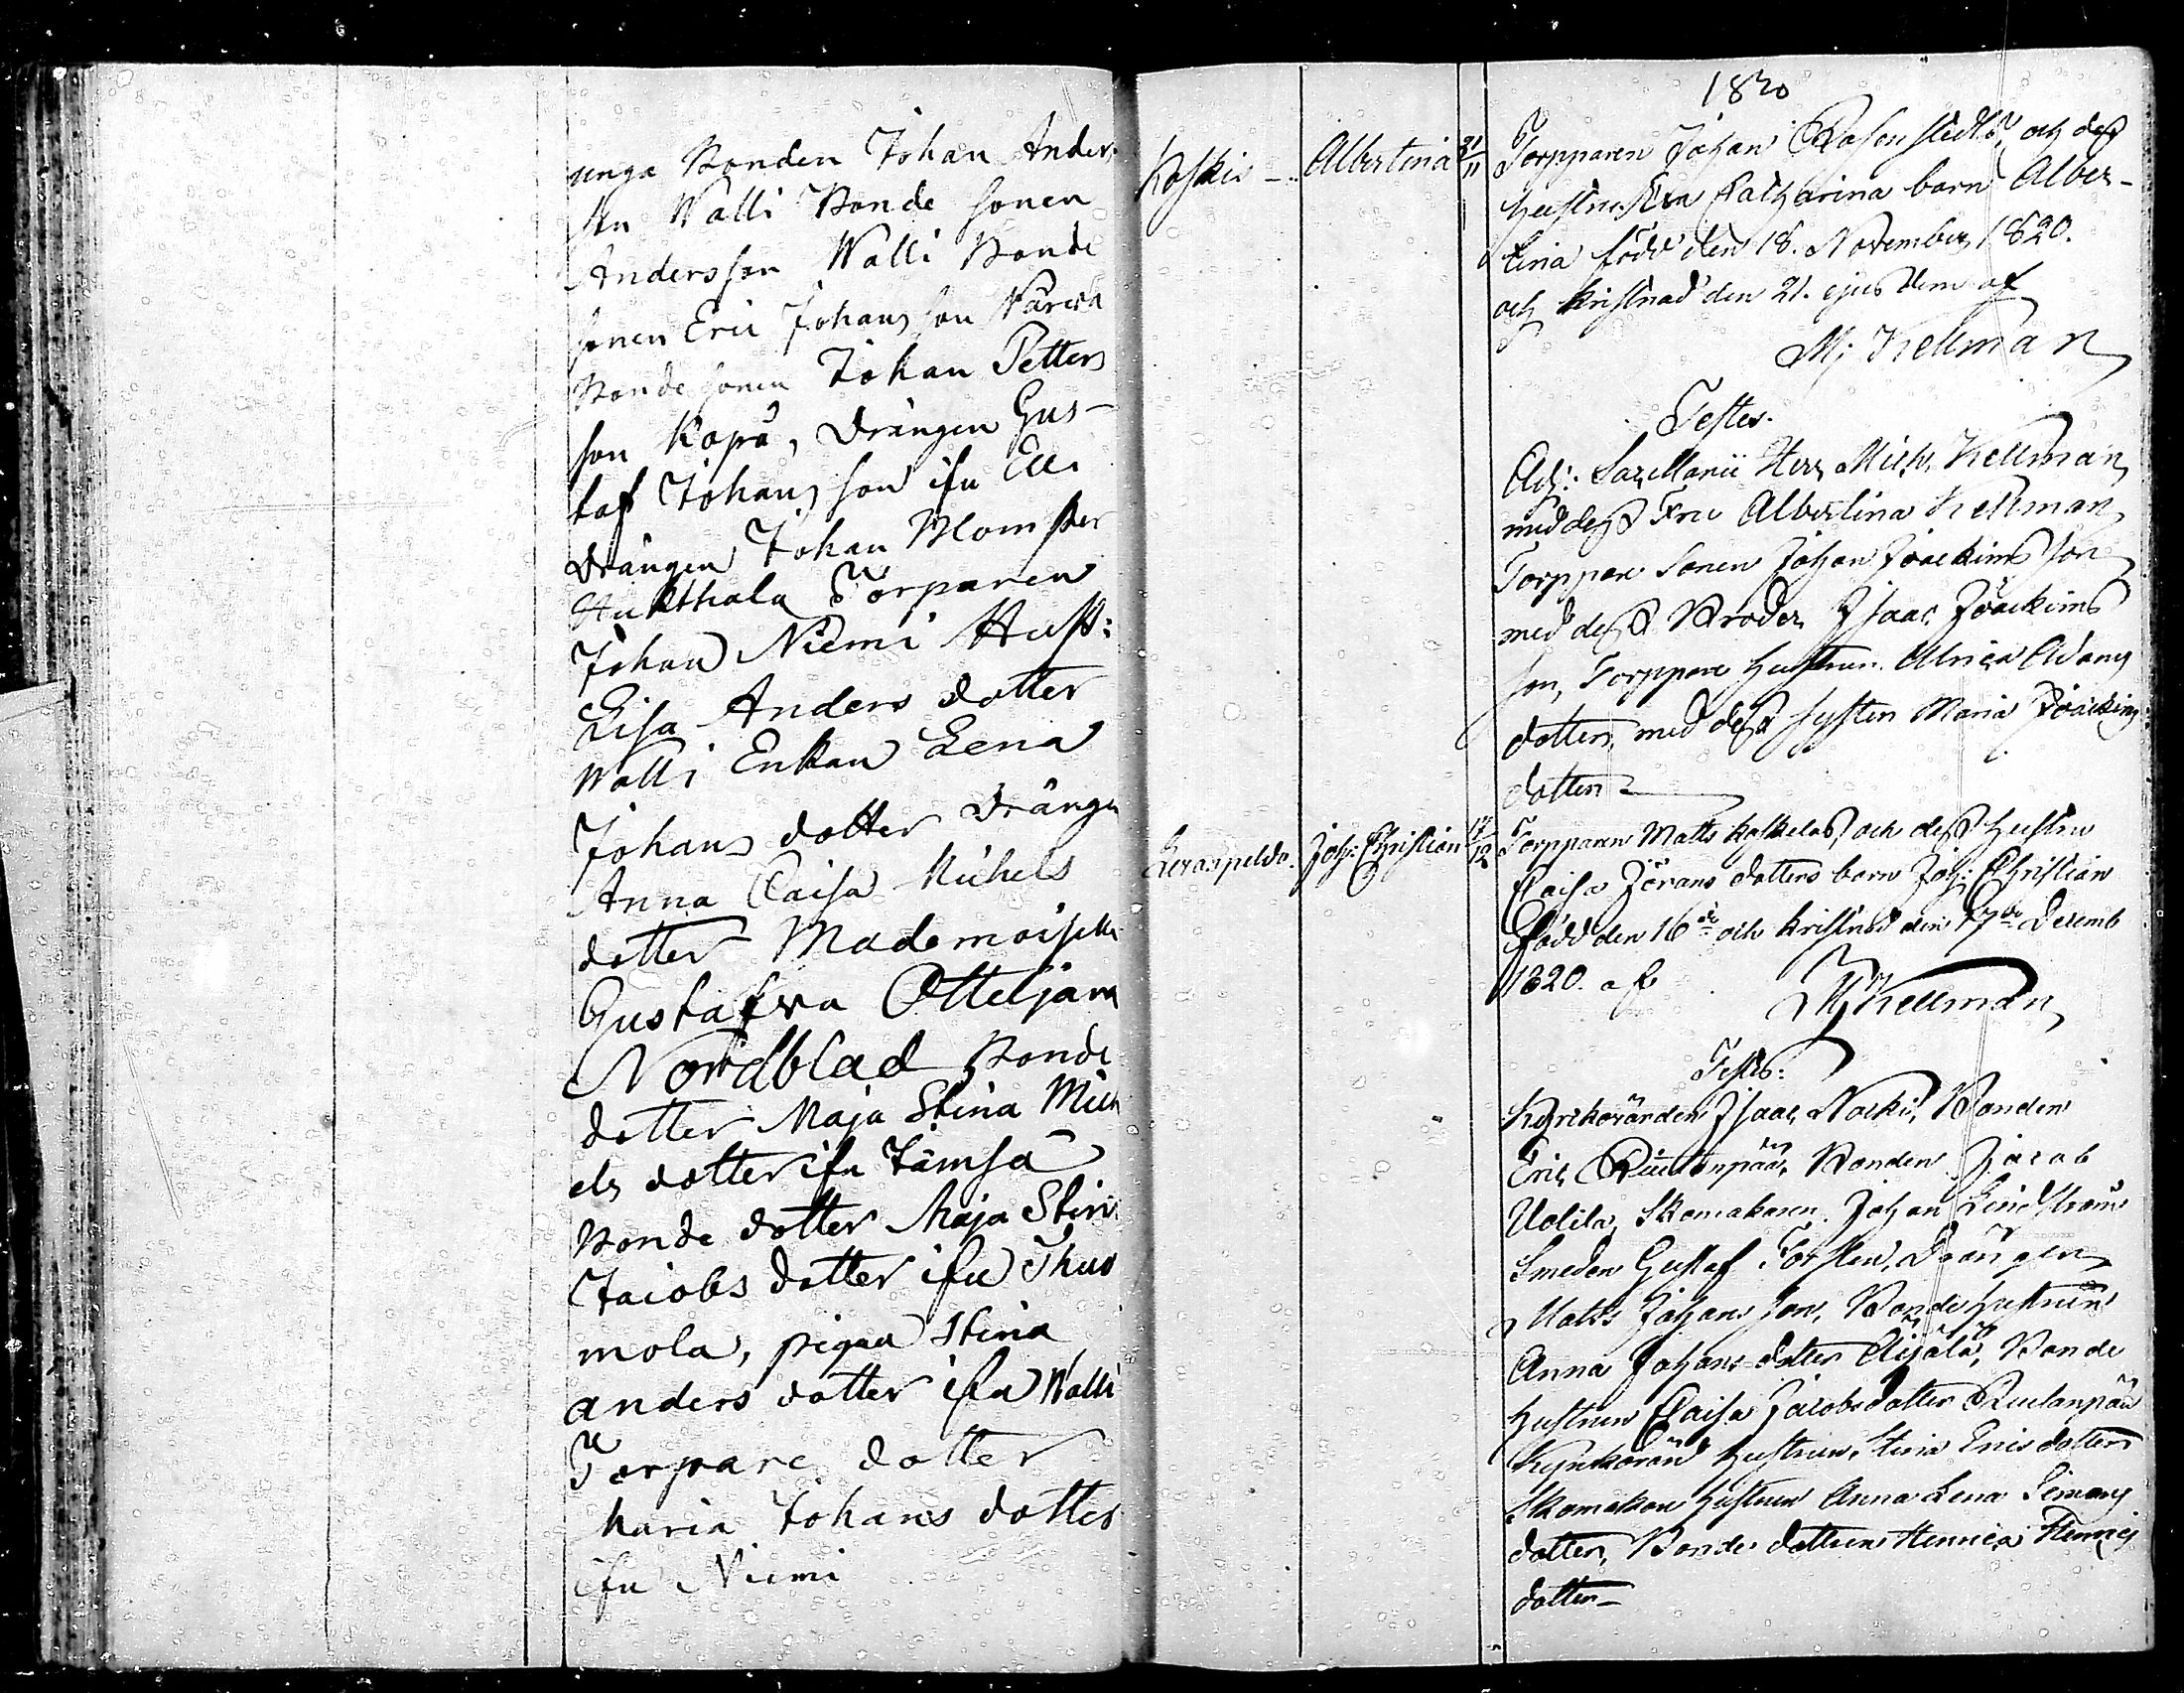 unga Bonden Johan Anders
son Walli Bonde sonen
Andersson Walli Bonde
sonen Eric Johansson Närwä
Bonde sonen Johan Petters
son Kopå, Drängen Gus-
taf Johans son ifn Elli
Drängen Johan Blomster
Huhthala Torparen
Johan Niemi Hust:
Lisa Anders dotter
Walli Enkan Lena
Johans dotter Drängen
Anna Caisa Michels
dotter Mademoiselle
Gustafva Otteljana
Nordblad Bonde
dotter Maja Stina Mich
els dotter ifn Jämsä
Bonde dotter Maja Stin
Jacobs dotter ifn Thuo
mola, pigan Stina
anders dotter ifn Walli
Torpare dotter
Maria Johans dotter
ifn Niemi
1820
Koskis Albertina 21/11 Torpparen Johan Rosenstedts, och dess
hustrus Eva Catharina barn Alber-
tina född den 18. November 1820.
och kristnad den 21. ejusdem af
M: Kellman
Testes.
Adj: Sacellanii Herr Mich. Kellman
med dess Fru Albertina Kellman
Torppare Sonen Johan Joackims son
med dess Broder Isaac Joackims
son, Torppare hustrun Ulrica Adams
dotter, med dess syster Maria Joackims
dotter
Leranpeldo. Joh: Christian 17/12 Torpparen Matts Koskelas, och dess hustru
Caisa Jörans dotters barn Joh: Christian
född den 16de och kristnad den 17de Decemb
1820. af
M Kellman
Testes:
Kyrkovärden Isaac Nocki, Bonden
Eric Ruutanpää, Bonden Jacob
Uolila, Skomakaren Johan Lindström
Smeden Gustaf Forsten, Drängen
Matts Johans son, Bonde hustrun
Anna Johans dotter Äijälä, Bonde
hustrun Caisa Jacobs dotter Ruutanpää
Kyrkovärd hustrun, Stina Erics dotter
Skomakare hustrun Anna Lena Simons
dotter, Bonde dottren Henrica Henrics
dotter